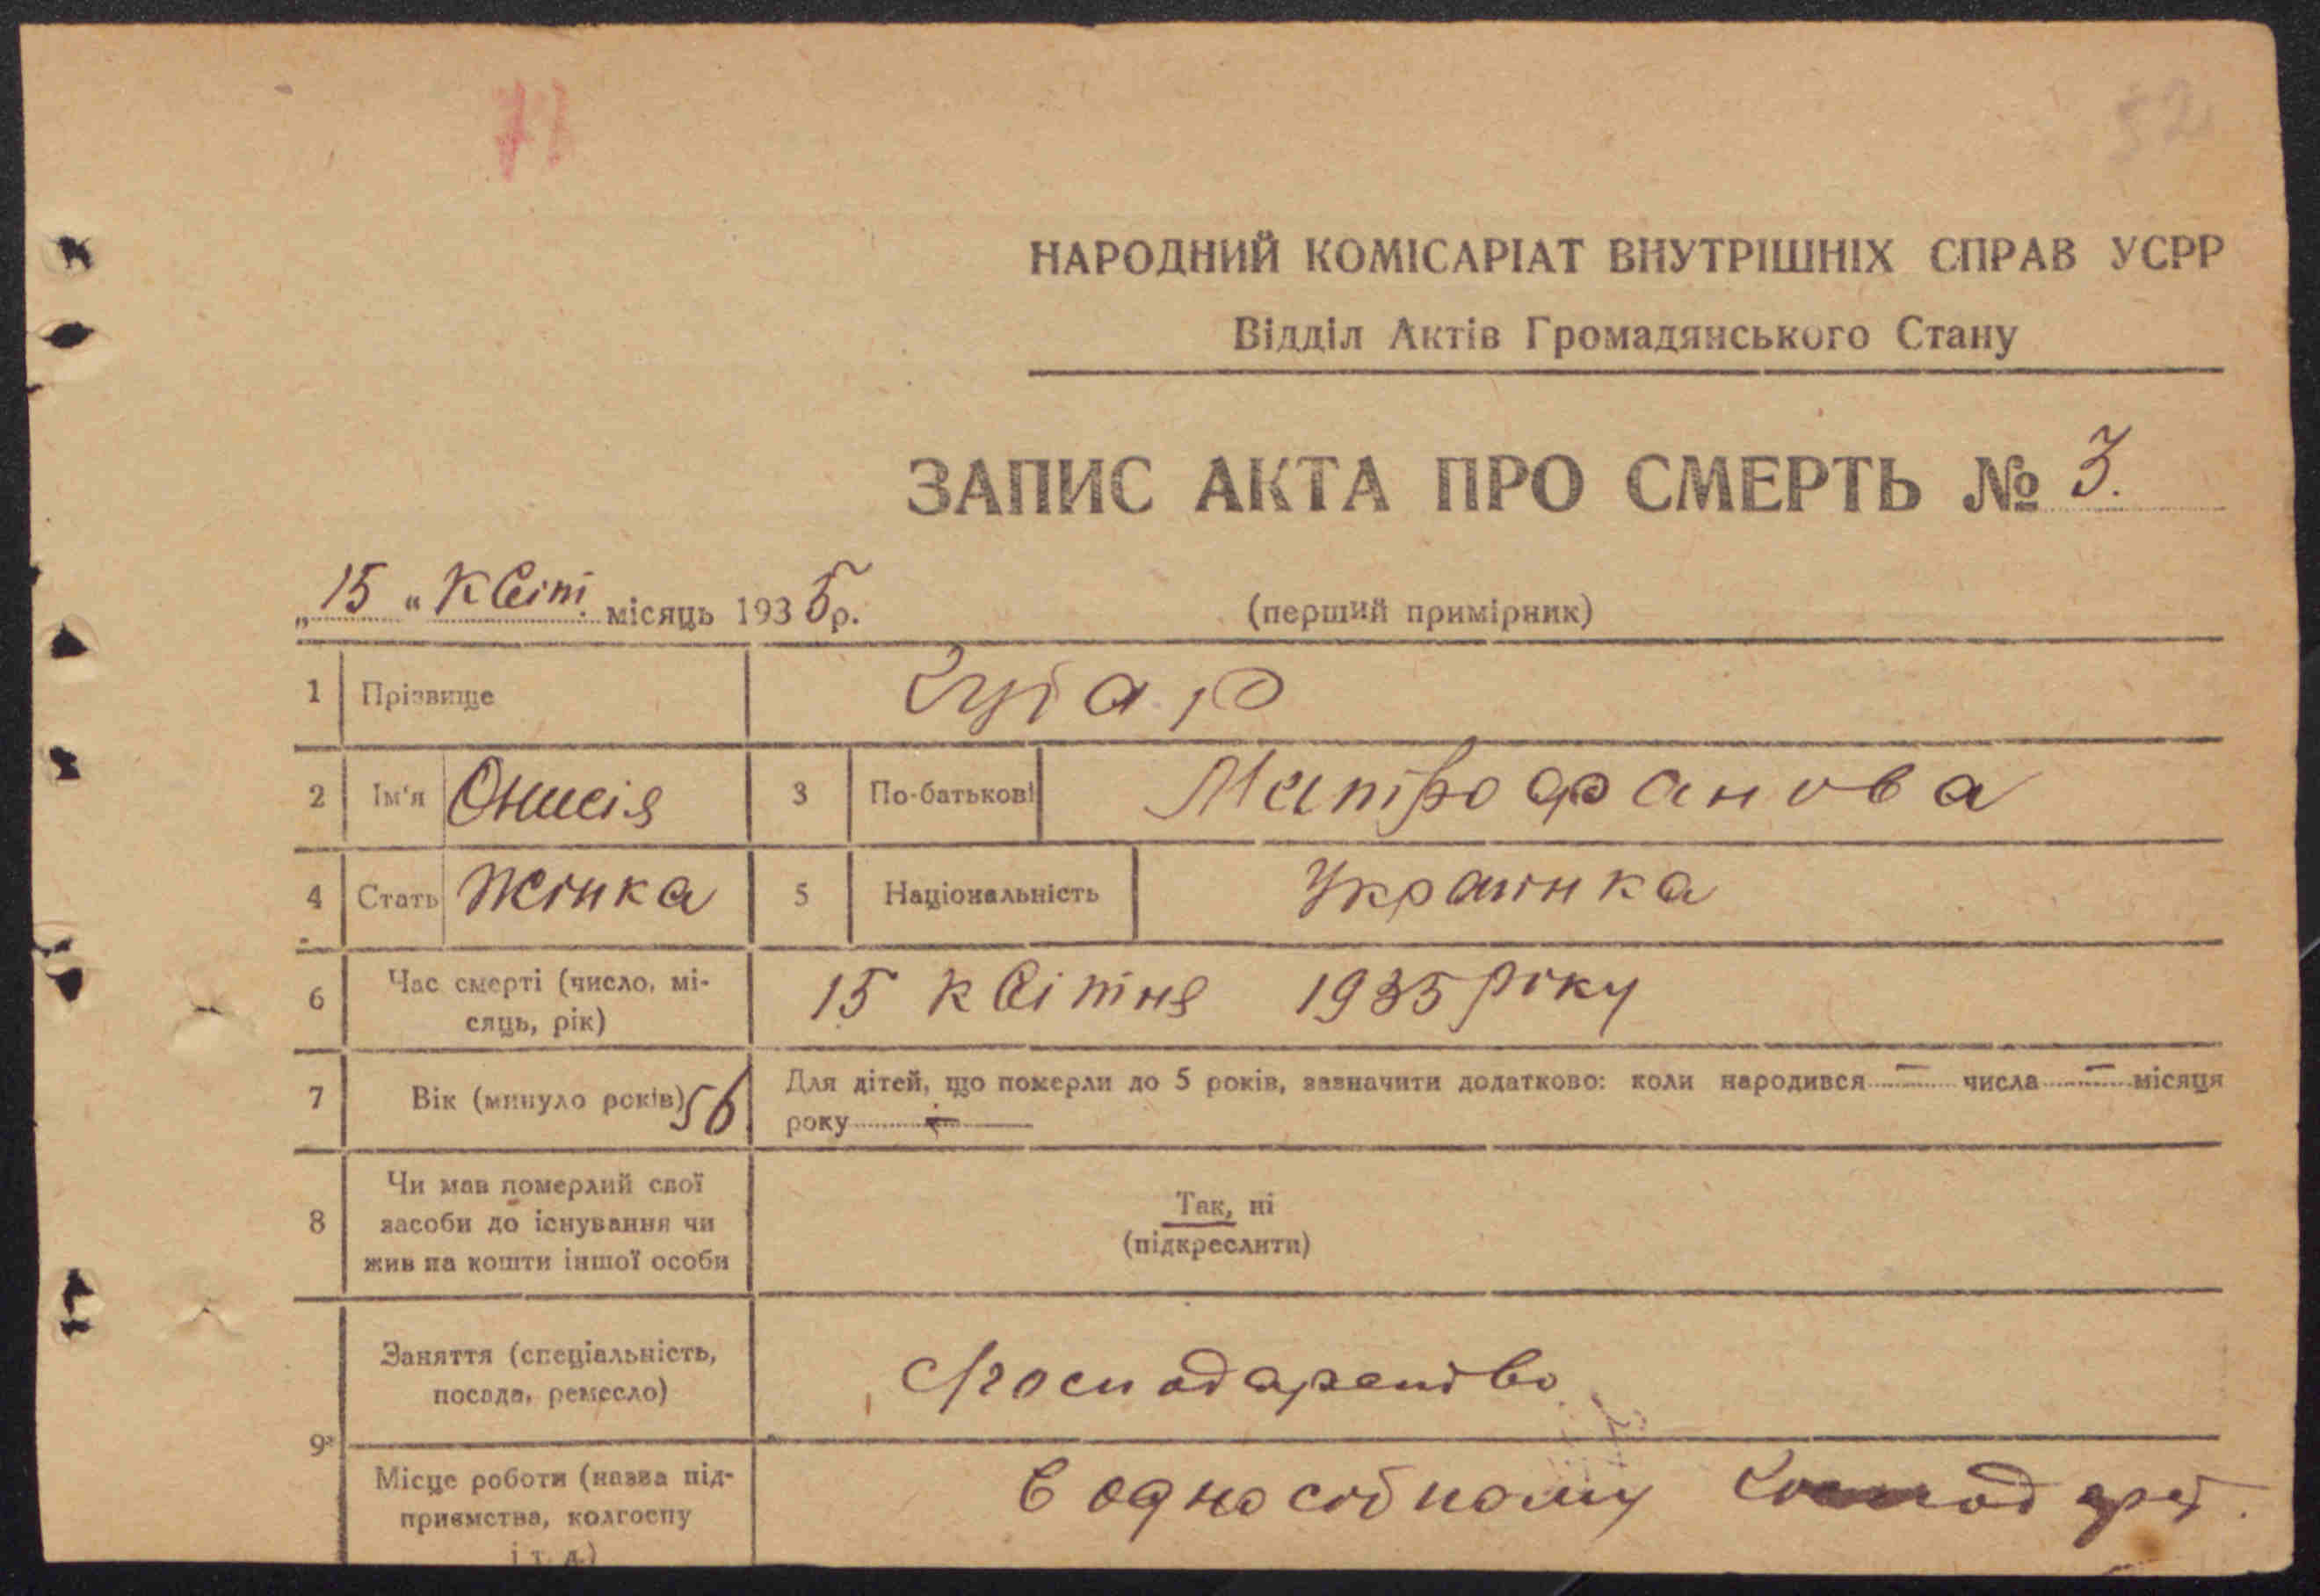 71
52
НАРОДНИЙ КОМІСАРІАТ ВНУТРІШНІХ СПРАВ УСРР
Відділ Актів Громадянського Стану
ЗАПИС АКТА ПРО СМЕРТЬ № 3.
„15“ Квіт. місяць 1935р.
(перший примірник)
1 Прізвище
2 Ім'я Онисія 3 По-батькові Митрофанова
4 Стать Жінка 5 Національність Украинка
6 Час смерті (число, мі-
сяць, рік) 15 квітня 1935 року
7 Вік (минуло років) 56 Для дітей, що померли до 5 років, зазначити додатково: коли народився — числа — місяця
року —
8 Чи мав померлий свої
засоби до існування чи
жив на кошти іншої особи
Так, ні
(підкреслити)
9 Заняття (спеціальність,
посада, ремесло) Господарство
Місце роботи (назва під-
приємства, колгоспу
і т. д.)
В однособному господарст.